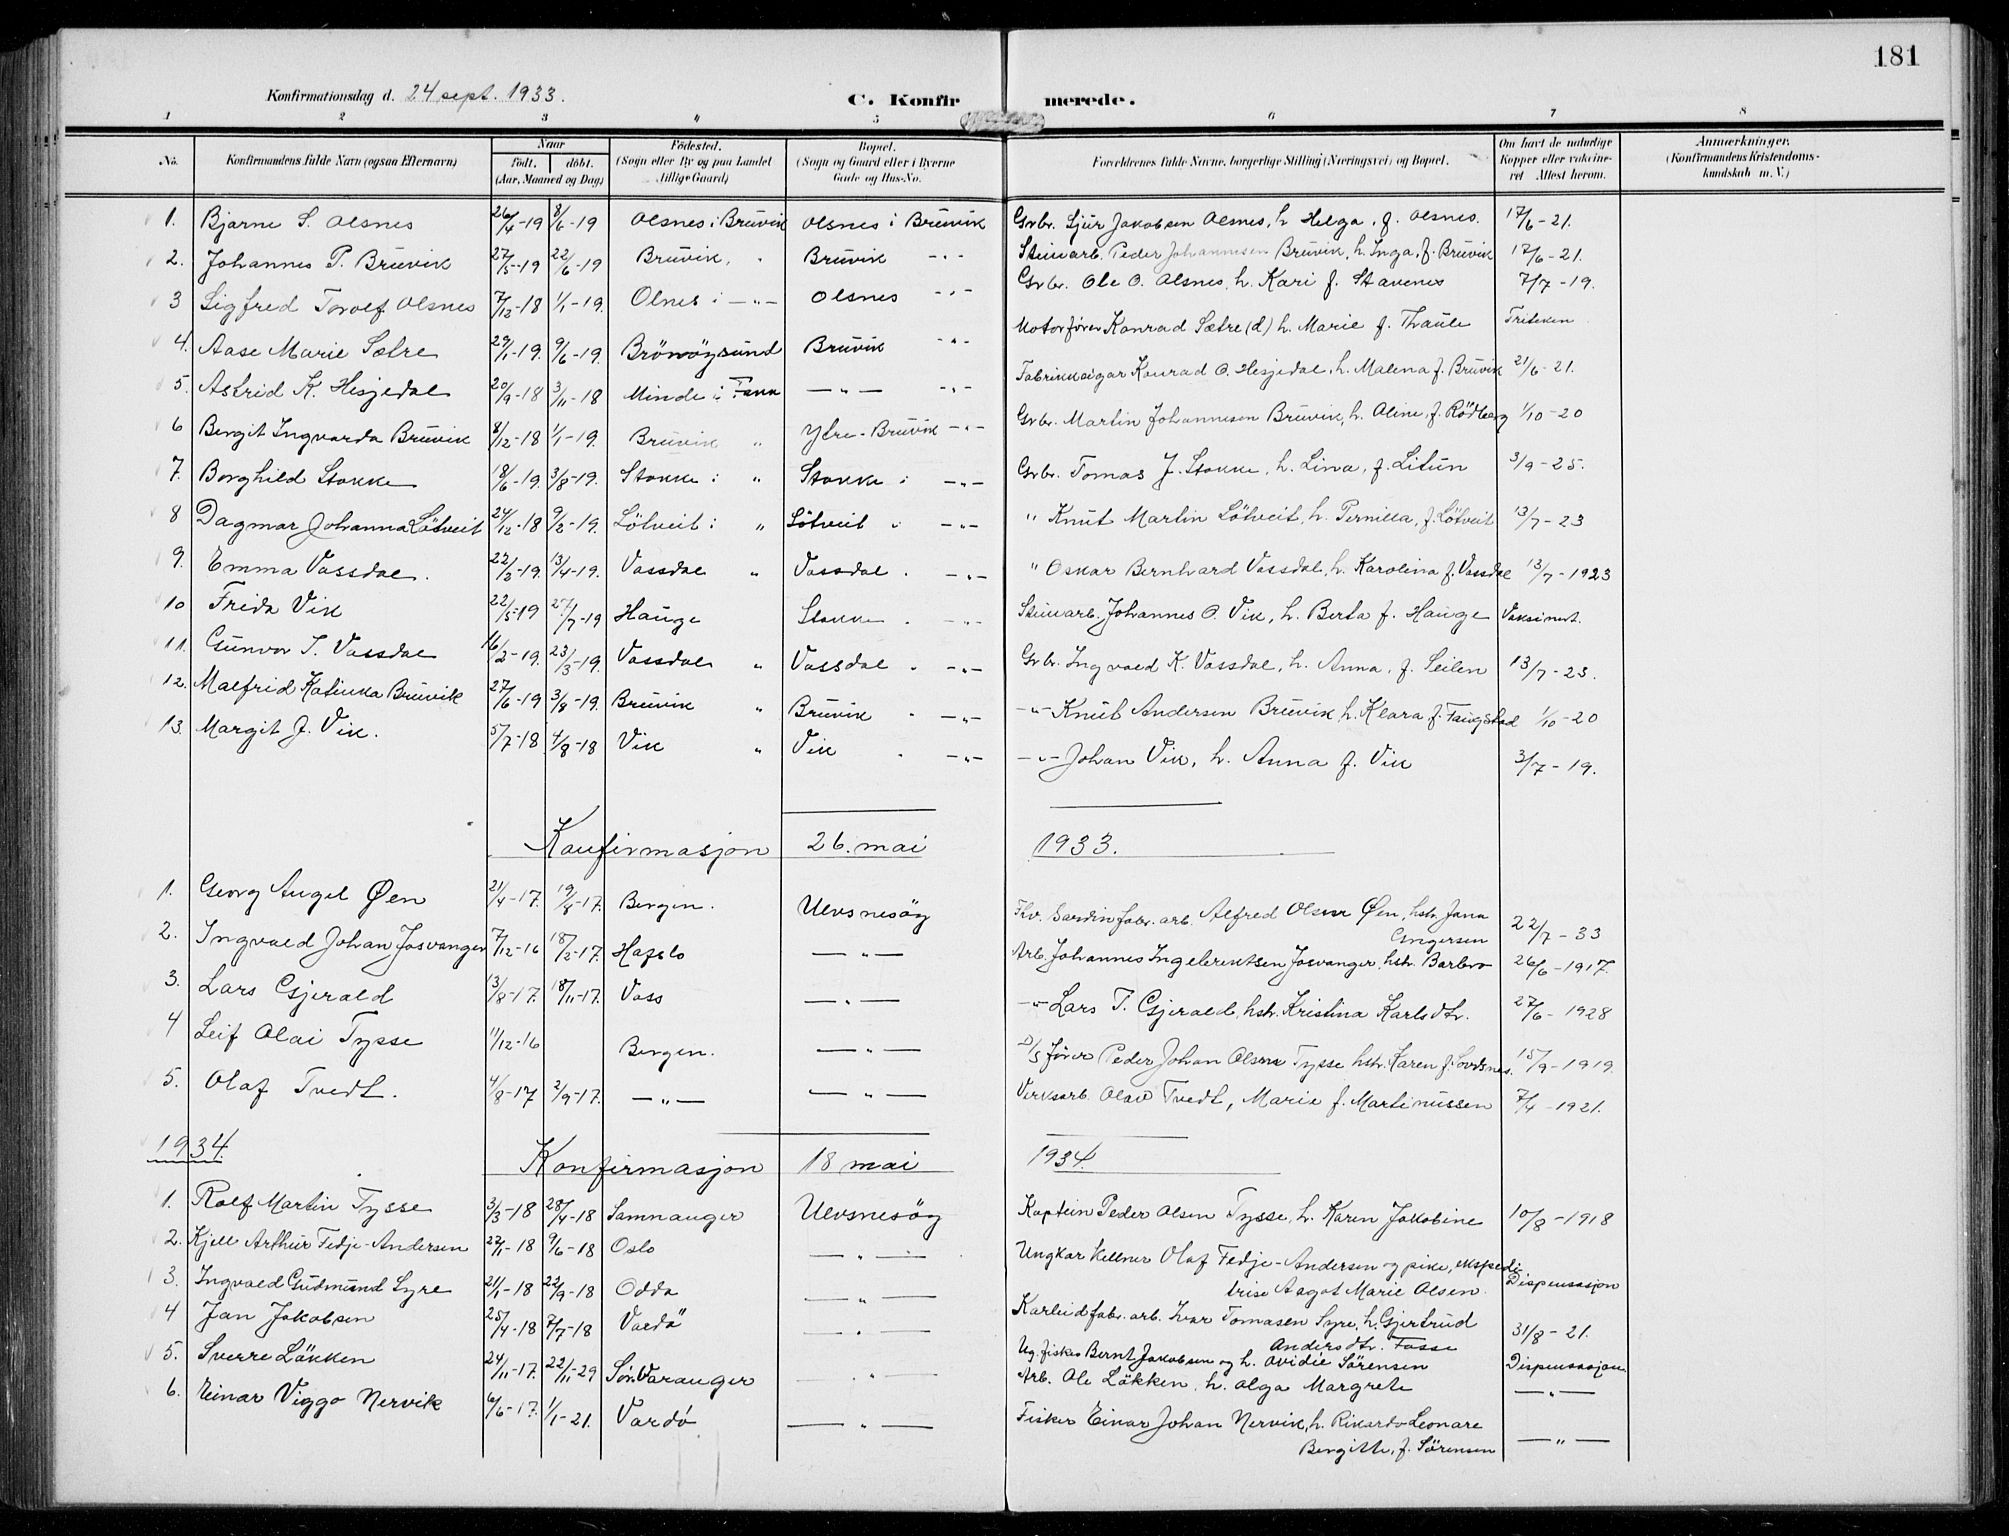 181
Konfirmationsdag d. 24 sept. 1933.
C. Konfirmerede.
1 2 3 " 5 6 7 8
No. Konfirmandens fulde Navn (ogsaa Efternavn) Naar født. døbt. (Aar, Maaned og Dag) Fødested. (Sogn eller By og paa Landet tillige Gaard) Bopæl. (Sogn og Gaard eller i Byerne Gade og Hus-No. Forældrenes fulde Navne, borgerlige Stilling (Næringsvei) og Bopæl. Om havt de naturlige Kopper eller vakcineret Attest herom. Anmærkninger. (Konfirmandens Kristendomskundskab m. V.)
1. Bjarne S. Olsnes 26/4-19 8/6-19 Olsnes i Bruvik Olsnes i Bruvik Grbr. Sjur Jakobsen Olsnes, h. Helga, f. Olsnes. 17/6-21.
2. Johannes P. Bruvik 27/5-19 22/6-19 Bruvik, " Bruvik -"- Steinarb. Peder Johannesen Bruvik, h. Inga, f. Bruvik 17/6-21.
3 Sigfred Torolf Olsnes 7/12-18 1/1-19. Olnes i -"- Olsnes -"- Grbr. Ole O. Olsnes, h. Kari f. Stavenes 7/7-19.
4. Aase Marie Sætre 29/1-19. 9/6-19. Brönöysund Bruvik -"- Motorfører Konrad Sætre (d) h. Marie f. Thaule Friteken
5. Astrid K. Hesjedal 20/9-18 3/11-18 Minde i Fana -"- -"- Fabrikkeigar Konrad O. Hesjedal, h. Malena f. Bruvik 21/6-21.
6 Bergit Ingvarda Bruvik 8/12-18 1/1-19. Bruvik " Ytre-Bruvik -"- Grbr. Martin Johannesen Bruvik, h. Oline, f. Rödberg 1/10-20
7. Borghild Stokke 18/6-19. 3/8-19. Stokke i " Stokke i -"- Grbr. Tomas J. Stokke, h. Lina, f. Litun 3/9-25.
8 Dagmar Johanna Lötveit 24/12-18 9/2-19. Lötveit i " Lötveit " -"- " Knut Martin Lötveit, h. Pernilla, f. Lötveit 13/7-23
9. Emma Vassdal. 22/2-19. 13/4-19. Vassdal " Vassdal . -"- " Oskar Bernhard Vassdal, h. Karolina f. Vassdal 13/7-1923
10 Frida Vik 22/5-19 27/7-19 Hauge Stokke . -"- Steinarb. Johannes O. Vik, h. Berta f. Hauge Vaksinert.
11. Gunvor I. Vassdal 16/2-19. 23/3-19. Vassdal " Vassdal . -"- Grbr. Ingvald K. Vassdal, h. Anna, f. Seilen 13/7-23.
12. Malfrid Katinka Bruvik 27/6-19 3/8-19. Bruvik " Bruvik . -"- -"- Knut Andersen Bruvik h. Klara f. Faugstad 1/10-20
13. Margit J. Vik. 5/7-18 4/8-18 Vik " Vik . -"- -"- Johan Vik, h. Anna f. Vik 3/7-19.
Konfirmasjon 26. mai 1933.
1. Georg Angel Øen 21/4-17. 19/8-17. Bergen. Ulvsnesög Fhv. Sardinfabr. arb. Alfred Olsen Øen, hstr. Jana Ingersen 22/7-33
2. Ingvald Johan Josvanger 7/12-16 18/2-17. Hafslo -"- Arb. Johannes Ingebrektsen Josvanger, hstr. Barbro 26/6-1917.
3. Lars Gjerald 13/8-17. 18/11-17. Voss -"- -"- Lars T. Gjerald, hstr. Kristina Karlsdtr. 27/6-1928
4 Leif Olai Tysse 11/12-16 Bergen. -"- D/S fører Peder Johan Olsen Tysse hstr. Karen f. Lordsnes. 15/9-1919.
5. Olaf Tvedt. 4/8-17 2/9-17. -"- -"- Verksarb. Olav Tvedt, Marie f. Martinussen 7/4-1921.
1934. Konfirmasjon 18 mai 1934.
1. Rolf Martin Tysse 3/3-18 28/4-18 Samnanger Ulvsnesög Kaptein Peder Olsen Tysse, h. Karen Jakobine 10/8-1918
2. Kjell Arthur Fedje-Andersen 22/1-18 9/6-18 Oslo -"- Ungkar kellner Olaf Fedje-Andersen og pike, ekspeditrise Aagot Marie Olsen. Dispensasjon
3. Ingvald Gudmund Syre 21/1-18 22/9-18 Odda -"- Karbidfabr. arb. Ivar Tomasen Syre, h. Gjertrud Andersdtr. Fosse 31/8-21.
4 Jan Jakobsen 25/4-18 7/7-18 Vardö -"- Ug. fisker Bernt Jakobsen og h. Ovidie Sörensen Dispensasjon
5. Sverre Lökken 24/11-17. 22/11-29 Sör-Varanger -"- Arb. Ole Lökken, h. Olga Margrete -"-
6. Einar Viggo Nervik 6/6-17. 1/1-21. Vardö -"- Fisker Einar Johan Nervik, h. Rikarda Leonare Bergitte, f. Sörensen -"-